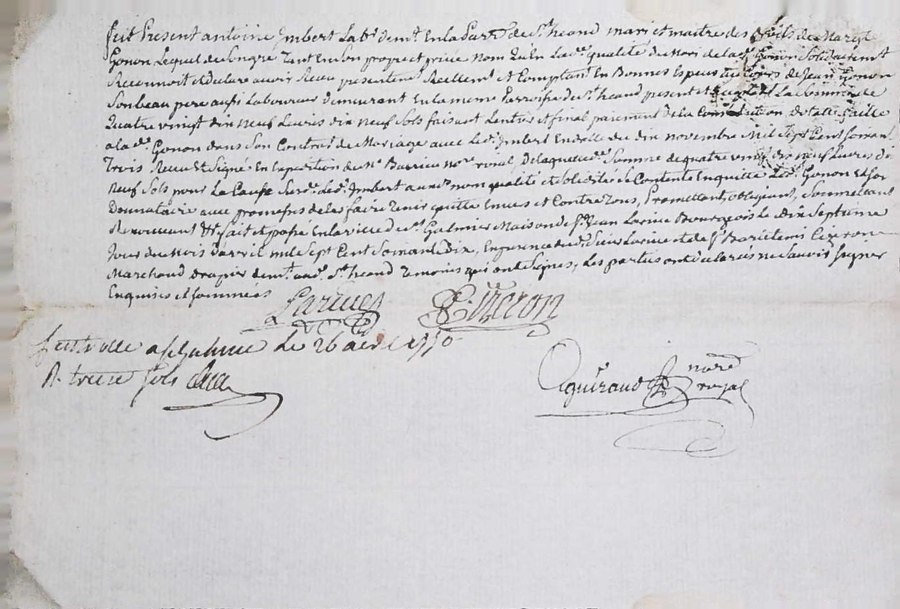 fut Present antoine Imbert Lab.r dem.t En la parr.e de St. heand mari et maitre des droits de Marg.te
Gonon Lequel de Son gré Tant En Son propre et privé Nom qu'En La d.e qualité de Mari de la d.e Gonon Solidairem.t
Reconnoit et declare avoir Recu presentem.t Reellem.t et Comptant En Bonnes Especes du Cours de Jean Gonon
Son beau pere aussi Laboureur demeurant En la meme Parroisse de St. heand present et acceptant La Somme de
Quatre vingt dix Neuf Livres dix Neuf Sols faisant L'entier et final paiement de la Constitution dotale faitte
a la d.e Gonon dans Son Contract de Mariage avec Led. Imbert En datte du dix novembre Mil Sept Cent Soixante
Trois Recu et Signé En Expedition de M.e Barrieu No.re royal De laquelle d.e Somme de quatre vingt dix neuf Livres dix
Neuf Sols pour La Cause Susd.e Led. Imbert aux d. nom qualité et Solidité Se Contente En quitte Led. Gonon Et Son
Donnataire avec promesses de les faire Tenir quitte Envers et Contre Tous, Promettant, obligeant, Soumettant
Renoncant &c fait et passé En la ville de St. Galmier Maison de S.r Jean Larive Bourgeois Le dix Septieme
Jour du Mois d'avril mil Sept Cent Soixante dix, En presence du d. Sieur Larive et de S.r Bartelemi Cizeron
Marchand drapier dem.t aud. St. heand Temoins qui ont Signés, Les parties ont declarées ne Savoir Signer
Enquises et Sommées
Larive Cizeron
Con.trollé a St Galmier Le 26 avril 1770
R. treize Sols
Aguiraud no.re royal